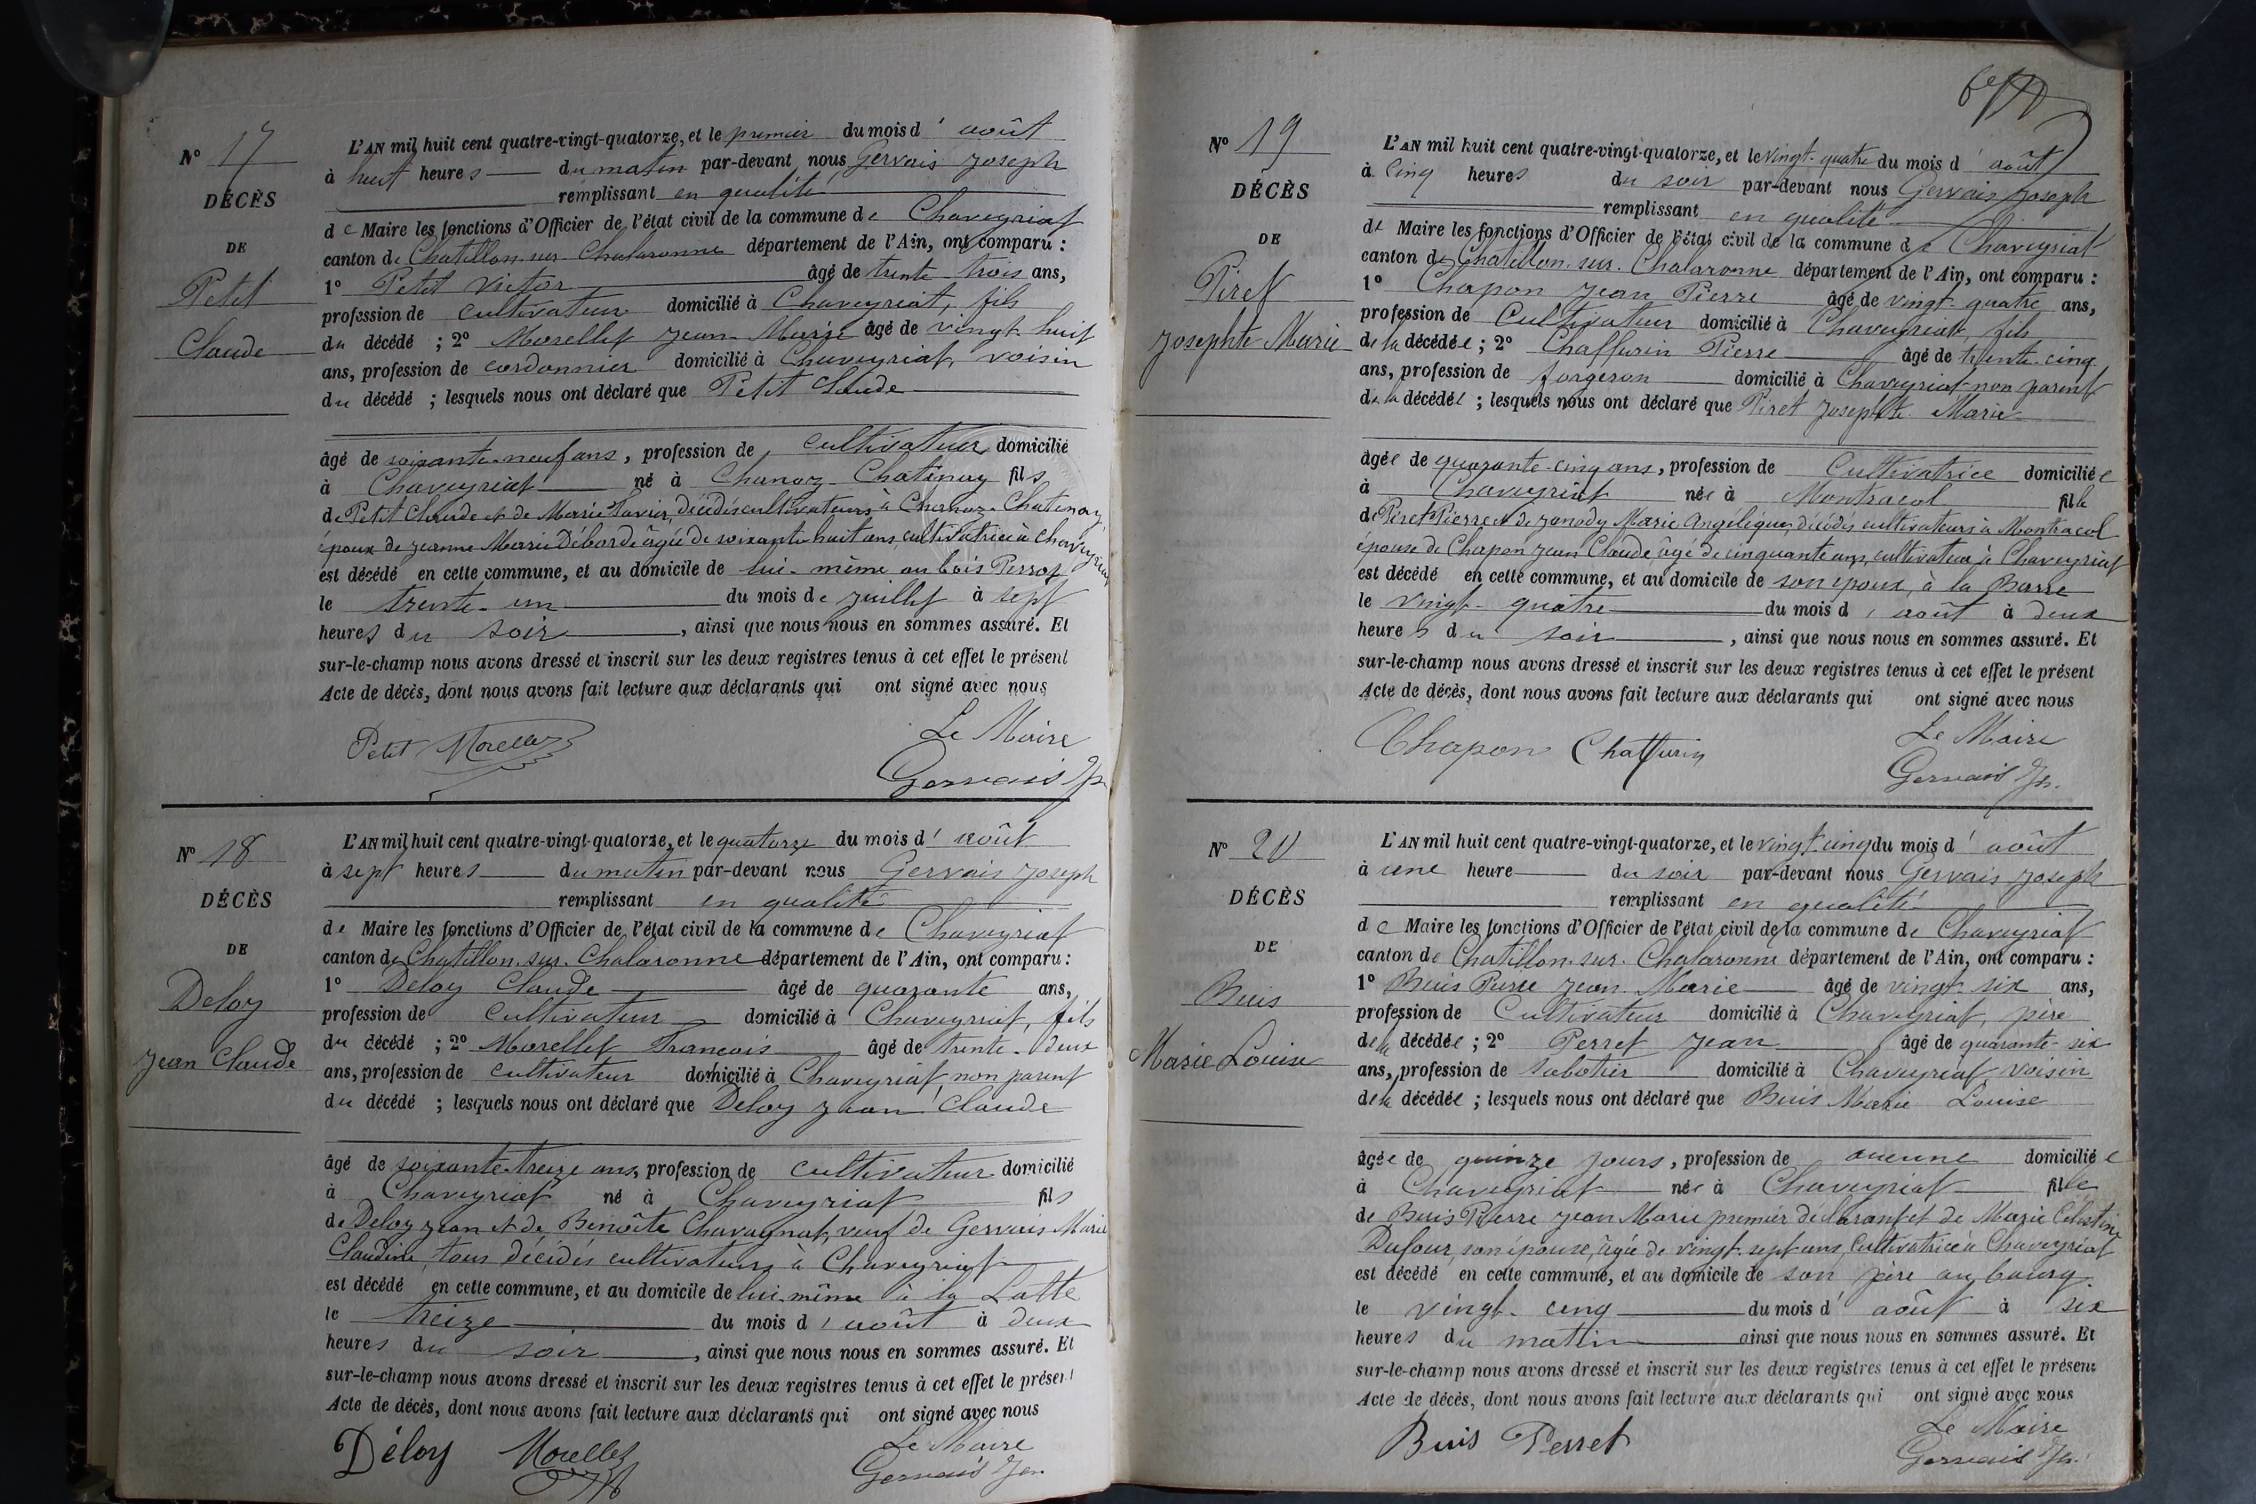 N° 17
DÉCÈS
DE
Petit
Claude
L'AN mil huit cent quatre-vingt-quatorze, et le premier du mois d' août
à huit heures du matin par-devant nous Gervais Joseph
remplissant en qualité
de Maire les fonctions d'Officier de l'état civil de la commune de Chaveyriat
canton de Chatillon-sur-Chalaronne département de l'Ain, ont comparu :
1° Petit Victor âgé de trente-trois ans,
profession de cultivateur domicilié à Chaveyriat, fils
du décédé ; 2° Morellet Jean-Marie âgé de vingt-huit
ans, profession de cordonnier domicilié à Chaveyriat, voisin
du décédé ; lesquels nous ont déclaré que Petit Claude
âgé de soixante-neuf ans, profession de cultivateur domicilié
à Chaveyriat né à Chanoz-Chatenay fils
de Petit Claude et de Marie Tavier, décédés cultivateurs à Chanoz-Chatenay,
époux de Jeanne Marie Débord âgée de soixante huit ans, cultivatrice à Chaveyriat
est décédé en cette commune, et au domicile de lui-même au bois Perrot
le trente-un du mois de juillet à sept
heures du soir, ainsi que nous nous en sommes assuré. Et
sur-le-champ nous avons dressé et inscrit sur les deux registres tenus à cet effet le présent
Acte de décès, dont nous avons fait lecture aux déclarants qui ont signé avec nous
Petit Morellet Le Maire
Gervais Jh
N° 18
DÉCÈS
DE
Deloy
Jean Claude
L'AN mil huit cent quatre-vingt-quatorze, et le quatorze du mois d' août
à sept heures du matin par-devant nous Gervais Joseph
remplissant en qualité
de Maire les fonctions d'Officier de l'état civil de la commune de Chaveyriat
canton de Chatillon-sur-Chalaronne département de l'Ain, ont comparu :
1° Deloy Claude âgé de quarante ans,
profession de cultivateur domicilié à Chaveyriat, fils
du décédé ; 2° Morellet François âgé de trente-deux
ans, profession de cultivateur domicilié à Chaveyriat non parent
du décédé ; lesquels nous ont déclaré que Deloy Jean Claude
âgé de soixante-treize ans, profession de cultivateur domicilié
à Chaveyriat né à Chaveyriat fils
de Deloy Jean et de Benoîte Chavagnat, veuf de Gervais Marie
Claudine, tous décédés cultivateurs à Chaveyriat
est décédé en cette commune, et au domicile de lui-même à la Latte
le treize du mois d' août à deux
heures du soir, ainsi que nous nous en sommes assuré. Et
sur-le-champ nous avons dressé et inscrit sur les deux registres tenus à cet effet le présent
Acte de décès, dont nous avons fait lecture aux déclarants qui ont signé avec nous
Déloy Morellet Le Maire
Gervais Jh
N° 19
DÉCÈS
DE
Piret
Josephte Marie
L'AN mil huit cent quatre-vingt-quatorze, et le vingt-quatre du mois d' août
à cinq heures du soir par-devant nous Gervais Joseph
remplissant en qualité
de Maire les fonctions d'Officier de l'état civil de la commune de Chaveyriat
canton de Chatillon-sur-Chalaronne département de l'Ain, ont comparu :
1° Chapon Jean Pierre âgé de vingt-quatre ans,
profession de Cultivateur domicilié à Chaveyriat, fils
de la décédée ; 2° Chaffurin Pierre âgé de trente-cinq
ans, profession de forgeron domicilié à Chaveyriat non parent
de la décédée ; lesquels nous ont déclaré que Piret Josephte Marie
âgée de quarante-cinq ans, profession de Cultivatrice domiciliée
à Chaveyriat née à Montracol fille
de Piret Pierre et de Janody Marie Angélique, décédés cultivateurs à Montracol
épouse de Chapon Jean Claude, âgé de cinquante ans, cultivateur à Chaveyriat
est décédé en cette commune, et au domicile de son époux, à la Barre
le vingt-quatre du mois d' août à deux
heures du soir, ainsi que nous nous en sommes assuré. Et
sur-le-champ nous avons dressé et inscrit sur les deux registres tenus à cet effet le présent
Acte de décès, dont nous avons fait lecture aux déclarants qui ont signé avec nous
Chapon Chaffurin Le Maire
Gervais Jh.
N° 20
DÉCÈS
DE
Buis
Marie Louise
L'AN mil huit cent quatre-vingt-quatorze, et le vingt-cinq du mois d' août
à une heure du soir par-devant nous Gervais Joseph
remplissant en qualité
de Maire les fonctions d'Officier de l'état civil de la commune de Chaveyriat
canton de Chatillon-sur-Chalaronne département de l'Ain, ont comparu :
1° Buis Pierre Jean-Marie âgé de vingt-six ans,
profession de Cultivateur domicilié à Chaveyriat, père
de la décédée ; 2° Perret Jean âgé de quarante-six
ans, profession de sabotier domicilié à Chaveyriat voisin
de la décédée ; lesquels nous ont déclaré que Buis Marie Louise
âgée de quinze jours, profession de aucune domiciliée
à Chaveyriat née à Chaveyriat fille
de Buis Pierre Jean Marie premier déclarant et de Marie Célestine
Dufour, son épouse, âgée de vingt-sept ans, Cultivatrice à Chaveyriat
est décédé en cette commune, et au domicile de son père au bourg
le vingt-cinq du mois d' août à six
heures du matin ainsi que nous nous en sommes assuré. Et
sur-le-champ nous avons dressé et inscrit sur les deux registres tenus à cet effet le présent
Acte de décès, dont nous avons fait lecture aux déclarants qui ont signé avec nous
Buis Perret Le Maire
Gervais Jh.